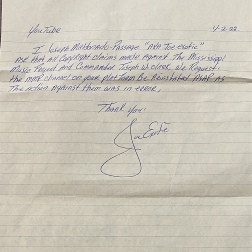 YouTube 4-2-22
I Joseph Maldonado-Passage "AKA Joe exotic"
ask that all Copyright claims made against The Mississippi
Music Project and Commander Joseph be clear. We Request
the MMP channel on your platform Be Reinstated ASAP as
The action against them was in error.
Thank you.
Joe Exotic